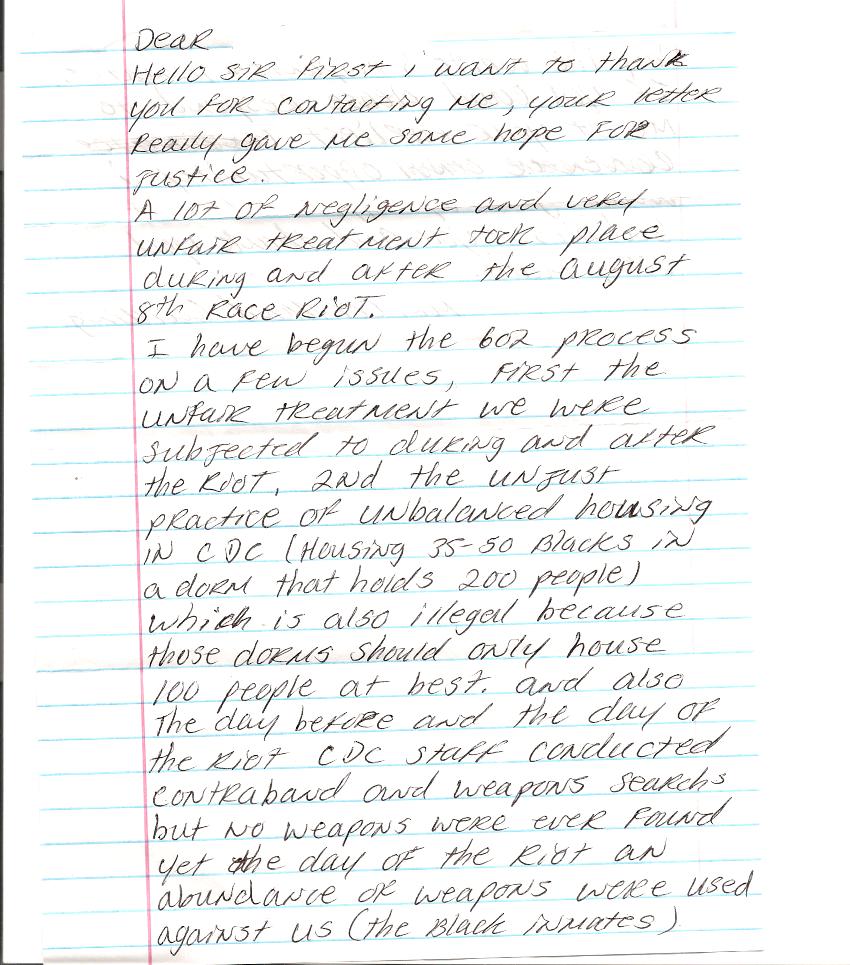 Dear
Hello sir first i want to thank
you for contacting me, your letter
really gave me some hope for
justice.
A lot of negligence and very
unfair treatment took place
during and after the august
8th Race Riot.
I have begun the 602 process
on a few issues, first the
unfair treatment we were
subjected to during and after
the Riot, 2nd the unjust
practice of unbalanced housing
in CDC (Housing 35-50 Blacks in
a dorm that holds 200 people)
which is also illegal because
those dorms should only house
100 people at best. and also
The day before and the day of
the Riot CDC staff conducted
contraband and weapons searchs
but no weapons were ever found
yet the day of the Riot an
abundance of weapons were used
against us (the Black inmates)